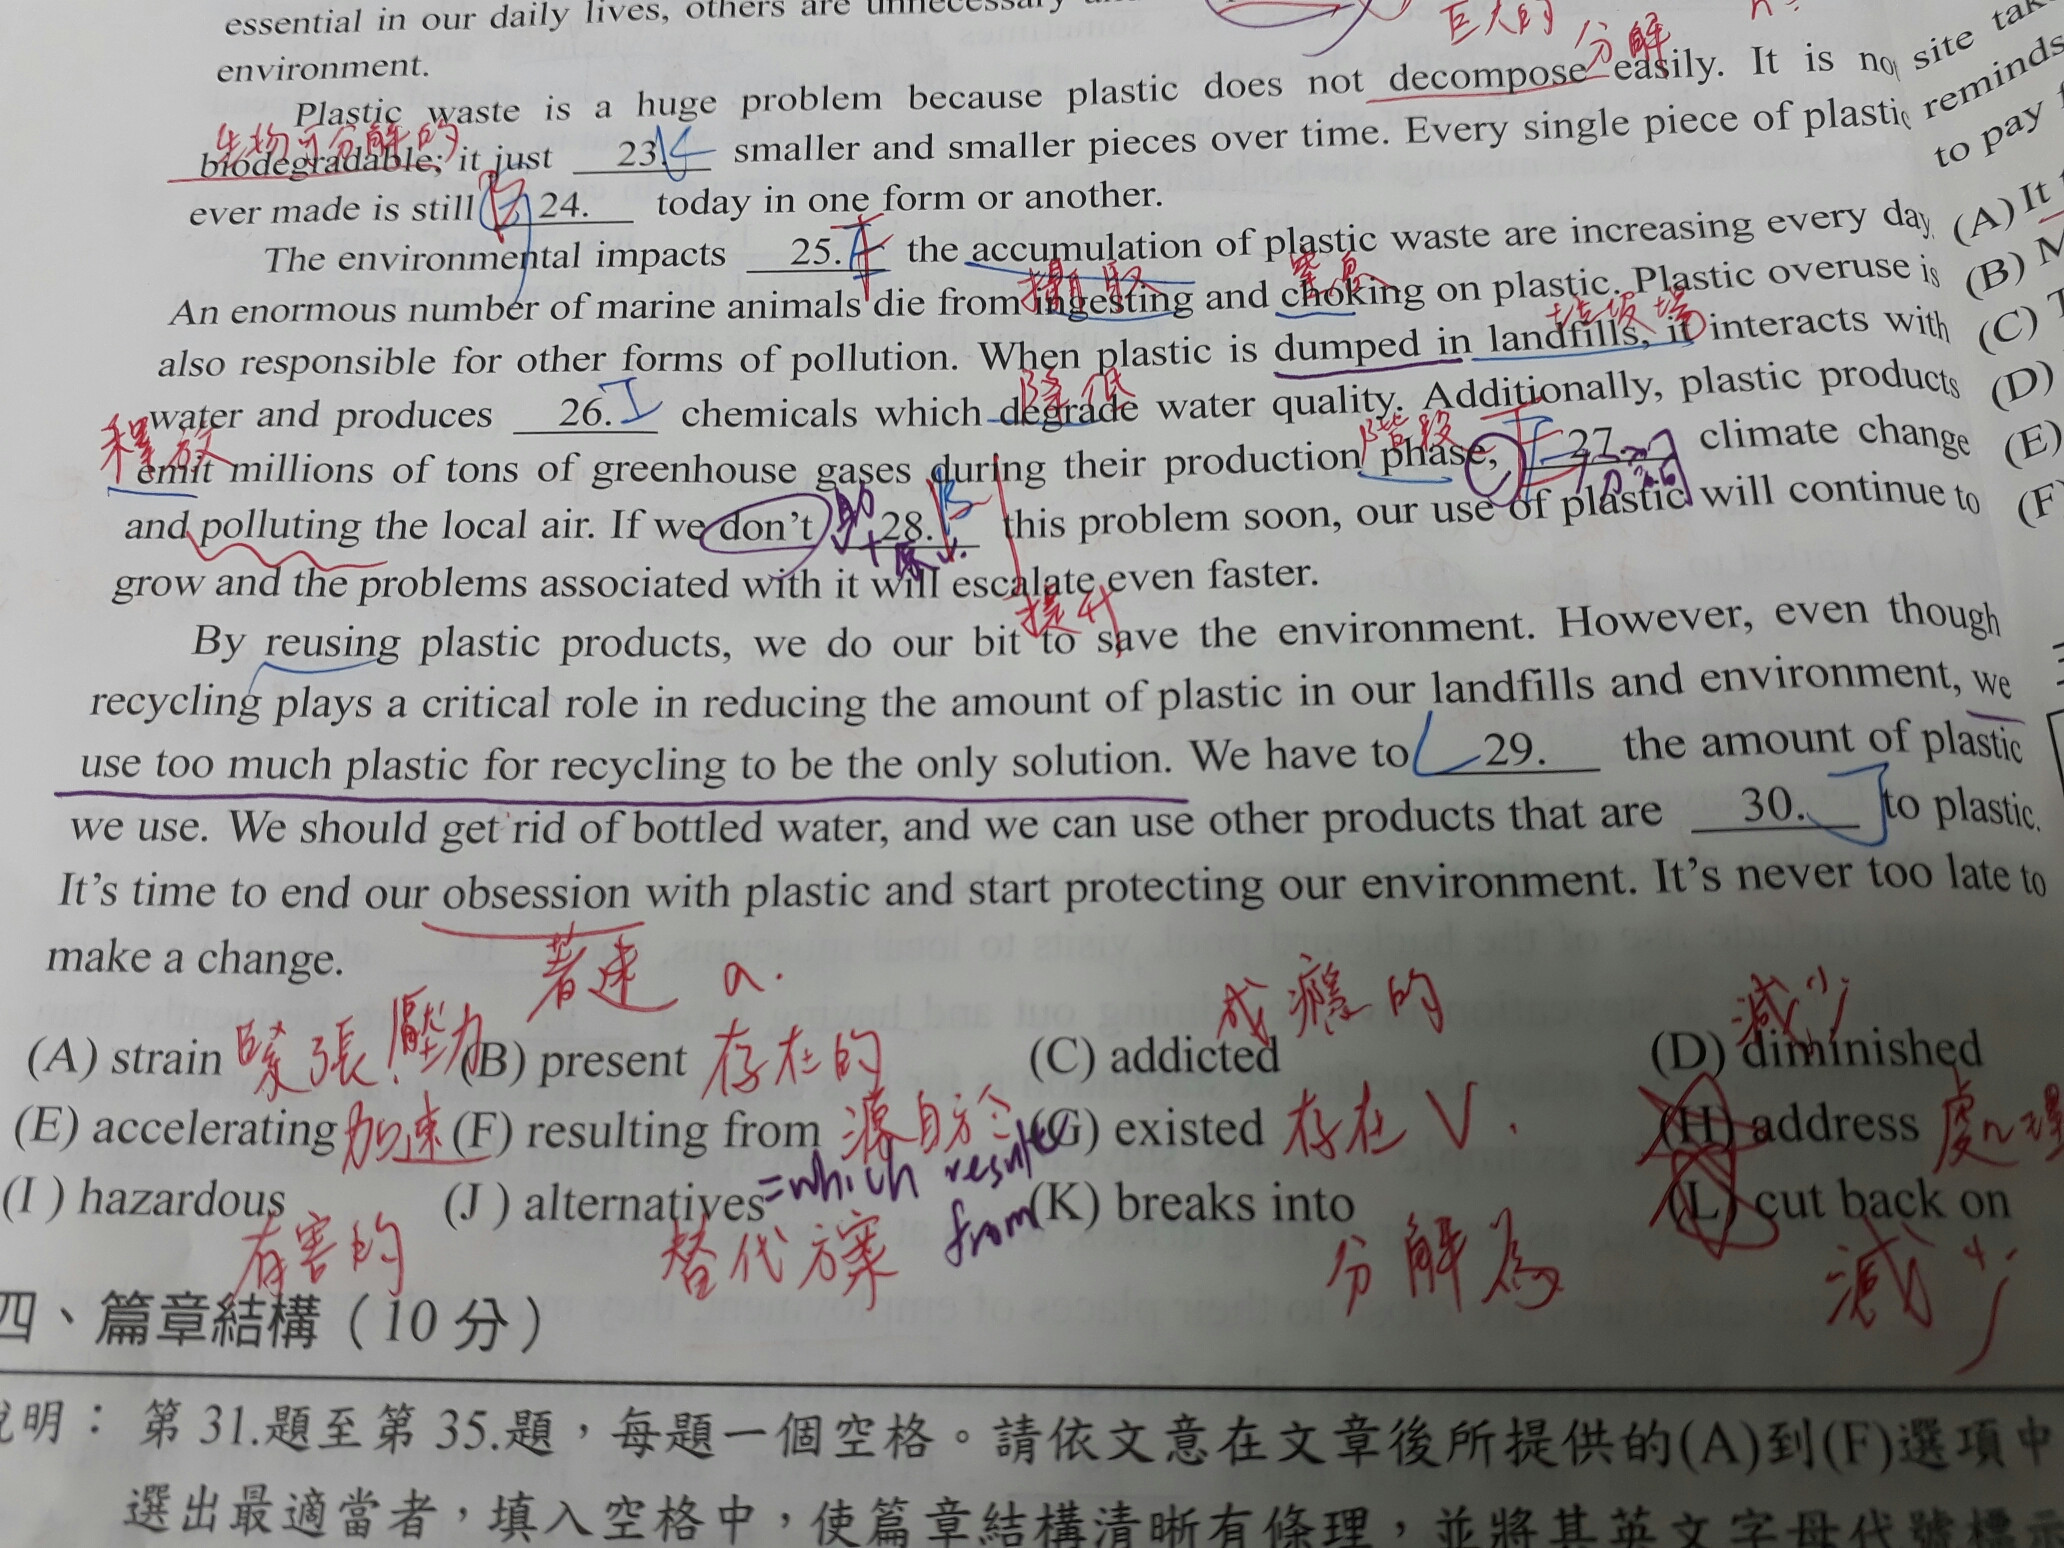 essential in our daily lives, others are unnecessary
environment.
巨大的 分解
Plastic waste is a huge problem because plastic does not decompose easily. It is no
生物可分解的
biodegradable; it just 23. K smaller and smaller pieces over time. Every single piece of plastic
ever made is still 24. today in one form or another.
The environmental impacts 25. F the accumulation of plastic waste are increasing every day
攝取 窒息
An enormous number of marine animals die from ingesting and choking on plastic. Plastic overuse is
垃圾場
also responsible for other forms of pollution. When plastic is dumped in landfills, it interacts with
降低
water and produces 26. I chemicals which degrade water quality. Additionally, plastic products
釋放 階段
emit millions of tons of greenhouse gases during their production phase, E 27. climate change
and polluting the local air. If we don't 助 28. this problem soon, our use of plastic will continue to
+原v.
grow and the problems associated with it will escalate even faster.
提升
By reusing plastic products, we do our bit to save the environment. However, even though
recycling plays a critical role in reducing the amount of plastic in our landfills and environment, we
use too much plastic for recycling to be the only solution. We have to L 29. the amount of plastic
we use. We should get rid of bottled water, and we can use other products that are 30. J to plastic.
It's time to end our obsession with plastic and start protecting our environment. It's never too late to
著迷 a.
make a change.
site tak
reminds
to pay
(A) It
(B) M
(C) T
(D)
(E)
(F)
成癮的 減少
(A) strain 緊張壓力 (B) present 存在的 (C) addicted (D) diminished
(E) accelerating 加速 (F) resulting from 源自於 (G) existed 存在 V. (H) address 處理
=which results from
(I) hazardous (J) alternatives (K) breaks into (L) cut back on
有害的 替代方案 分解為 減少
四、篇章結構（10 分）
說明：第 31.題至第 35.題，每題一個空格。請依文意在文章後所提供的(A)到(F)選項中
選出最適當者，填入空格中，使篇章結構清晰有條理，並將其英文字母代號標示